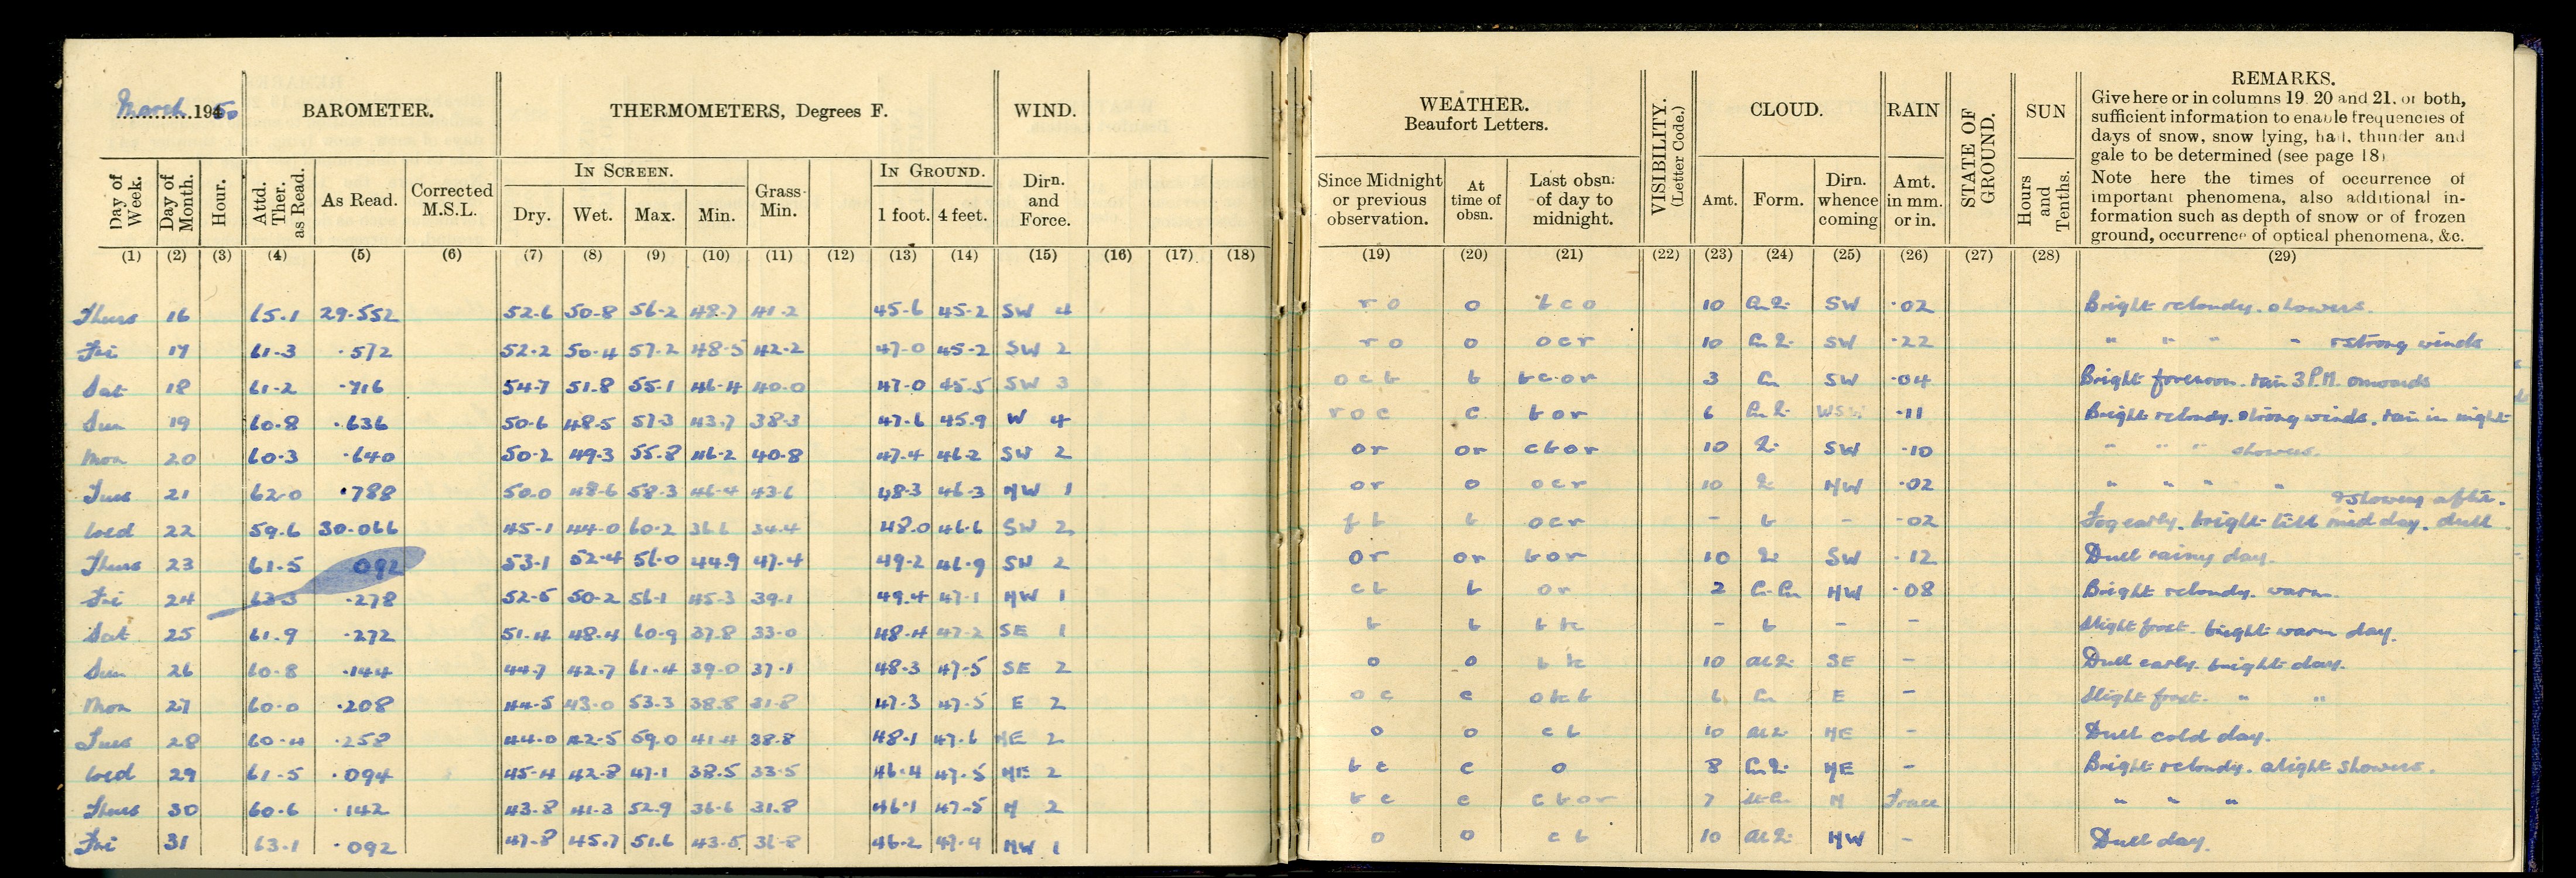 March 1950 BAROMETER. THERMOMETERS, Degrees F. WIND. WEATHER. Beaufort Letters. VISIBILITY. (Letter Code.) CLOUD. RAIN STATE OF GROUND. SUN REMARKS.
Give here or in columns 19, 20 and 21, or both,
sufficient information to enable frequencies of
days of snow, snow lying, hail, thunder and
gale to be determined (see page 18)
Note here the times of occurrence of
important phenomena, also additional in-
formation such as depth of snow or of frozen
ground, occurrence of optical phenomena, &c.
Day of Week. Day of Month. Hour. Attd. Ther. as Read. As Read. Corrected M.S.L. IN SCREEN. Dry. Wet. Max. Min. Grass Min. IN GROUND. 1 foot. 4 feet. Dirn. and Force. Since Midnight or previous observation. At time of obsn. Last obsn. of day to midnight. Amt. Form. Dirn. whence coming Amt. in mm. or in. Hours and Tenths.
(1) (2) (3) (4) (5) (6) (7) (8) (9) (10) (11) (12) (13) (14) (15) (16) (17) (18) (19) (20) (21) (22) (23) (24) (25) (26) (27) (28) (29)
Thurs 16 65.1 29.552 52.6 50.8 56.2 48.7 41.2 45.6 45.2 SW 4 r o o b c o 10 SW .02 Bright & cloudy. showers.
Fri 17 61.3 .572 52.2 50.4 57.2 48.5 42.2 47.0 45.2 SW 2 r o o o c r 10 SW .22 " " " " & strong winds
Sat 18 61.2 .716 54.7 51.8 55.1 46.4 40.0 47.0 45.5 SW 3 o c b b b c o r 3 Cu SW .04 Bright forenoon. rain 3 P.M. onwards
Sun 19 60.8 .636 50.6 48.5 57.3 43.7 38.3 47.6 45.9 W 4 r o c c b o r 6 .11 Bright & cloudy. strong winds. rain in night
Mon 20 60.3 .640 50.2 49.3 55.8 46.2 40.8 47.4 46.2 SW 2 o r o r c b o r 10 SW .10 " " " showers.
Tues 21 62.0 .788 50.0 48.6 58.3 46.4 43.6 48.3 46.3 NW 1 o r o o c r 10 NW .02 " " " "
Wed 22 59.6 30.066 45.1 44.0 60.2 36.6 34.4 48.0 46.6 SW 2 f b b o c r - b - .02 Fog early. bright till mid day. dull & showery after.
Thurs 23 61.5 092 53.1 52.4 56.0 44.9 47.4 49.2 46.9 SW 2 o r o r b o r 10 SW .12 Dull rainy day.
Fri 24 63.3 .278 52.5 50.2 56.1 45.3 39.1 49.4 47.1 NW 1 c b b o r 2 NW .08 Bright & cloudy. warm.
Sat 25 61.9 .272 51.4 48.4 60.9 37.8 33.0 48.4 47.2 SE 1 b b b bc - b - - Slight frost. bright warm day.
Sun 26 60.8 .144 44.7 42.7 61.4 39.0 37.1 48.3 47.5 SE 2 o o b bc 10 SE - Dull early. bright day.
Mon 27 60.0 .208 44.5 43.0 53.3 38.8 31.8 47.3 47.5 E 2 o c c o bc b 6 Cu E - Slight frost. " "
Tues 28 60.4 .258 44.0 42.5 59.0 41.4 38.8 48.1 47.6 NE 2 o o c b 10 NE - Dull cold day.
Wed 29 61.5 .094 45.4 42.8 47.1 38.5 33.5 46.4 47.5 NE 2 b c c o 8 NE - Bright & cloudy. slight showers.
Thurs 30 60.6 .142 43.8 41.3 52.9 36.6 31.8 46.1 47.5 N 2 b c c c b o r 7 N Trace " " "
Fri 31 63.1 .092 47.8 45.7 51.6 43.5 46.2 47.4 NW 1 o o c b 10 NW - Dull day.